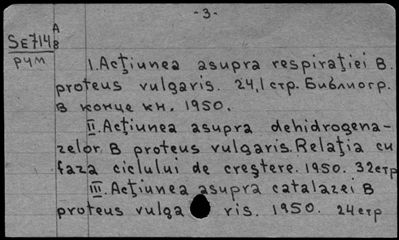 -3-
SE714 A/8
рум
I. Acţiunea asupra respiraţiei B.
proteus vulgaris. 24,1 стр. Библиогр.
в конце кн. 1950.
II. Acţiunea asupra dehidrogena-
zelor B proteus vulgaris. Relaţia cu
faza ciclului de creştere. 1950. 32 стр
III. Acţiunea asupra catalazei B
proteus vulga ris. 1950. 24 стр